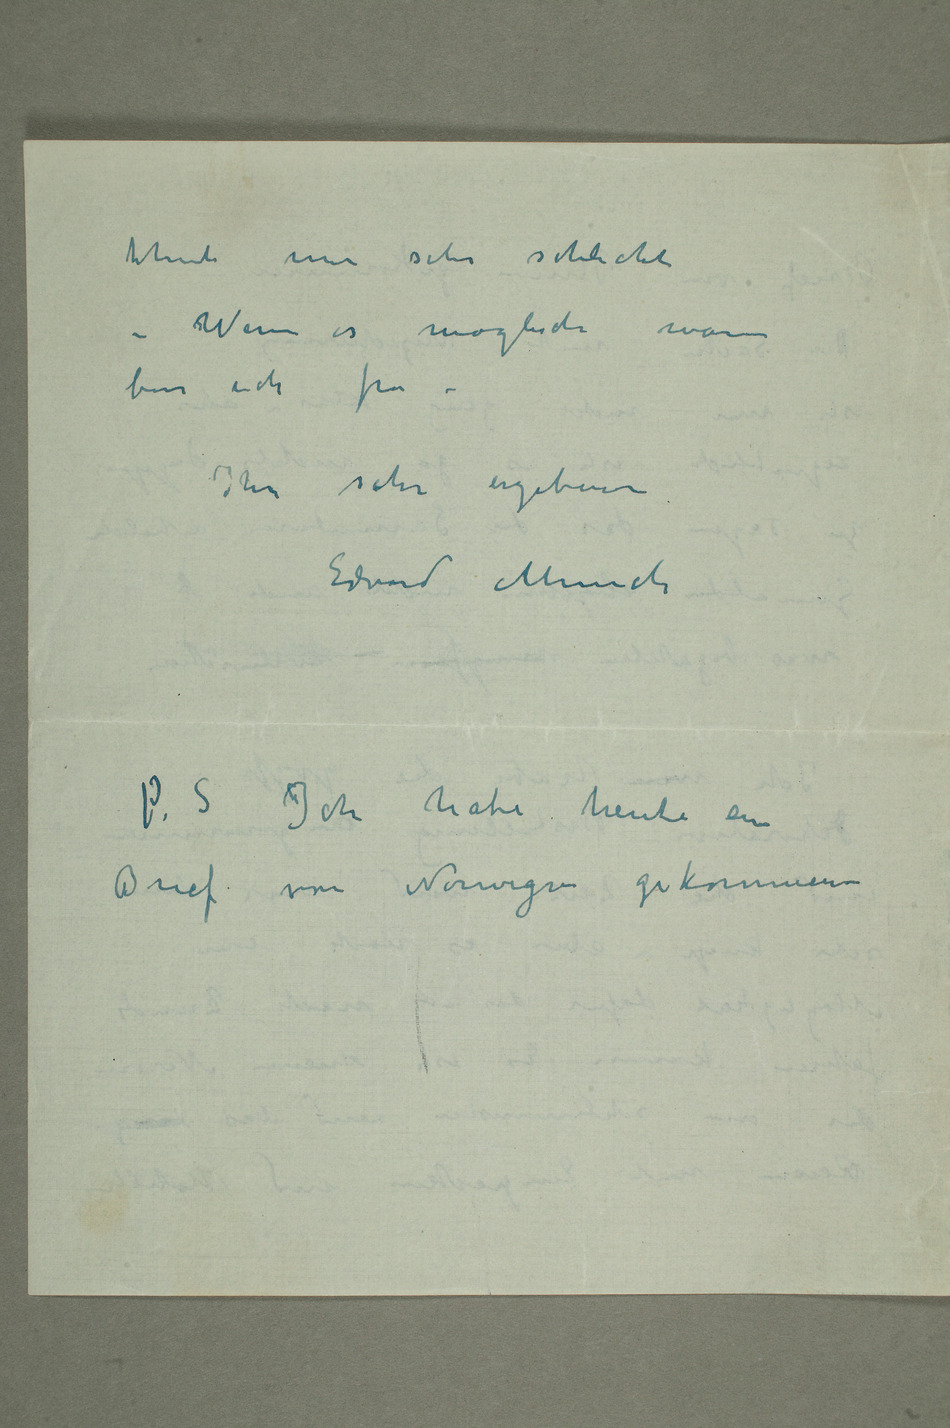 thut mir sehr schlecht
– Wenn es moglich war
bin ich fro –
Ihr sehr ergebener
Edvard Munch
P. S Ich habe heute ein
Brief von Norwegen gekommen